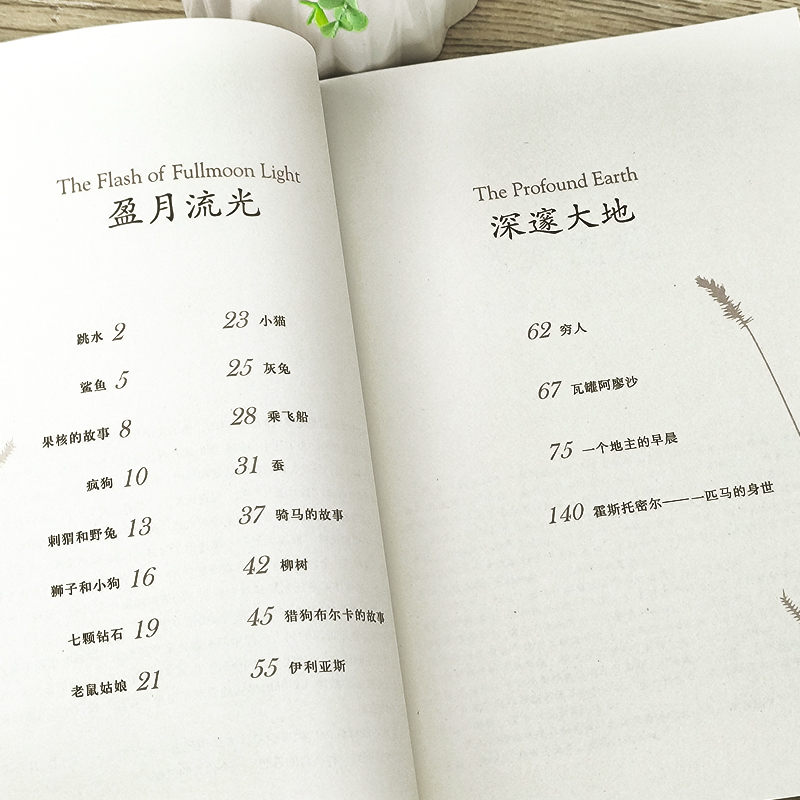 The Flash of Fullmoon Light
盈月流光
跳水 2
鲨鱼 5
果核的故事 8
疯狗 10
刺猬和野兔 13
狮子和小狗 16
七颗钻石 19
老鼠姑娘 21
23 小猫
25 灰兔
28 乘飞船
31 蚕
37 骑马的故事
42 柳树
45 猎狗布尔卡的故事
55 伊利亚斯
The Profound Earth
深邃大地
62 穷人
67 瓦罐阿廖沙
75 一个地主的早晨
140 霍斯托密尔——一匹马的身世